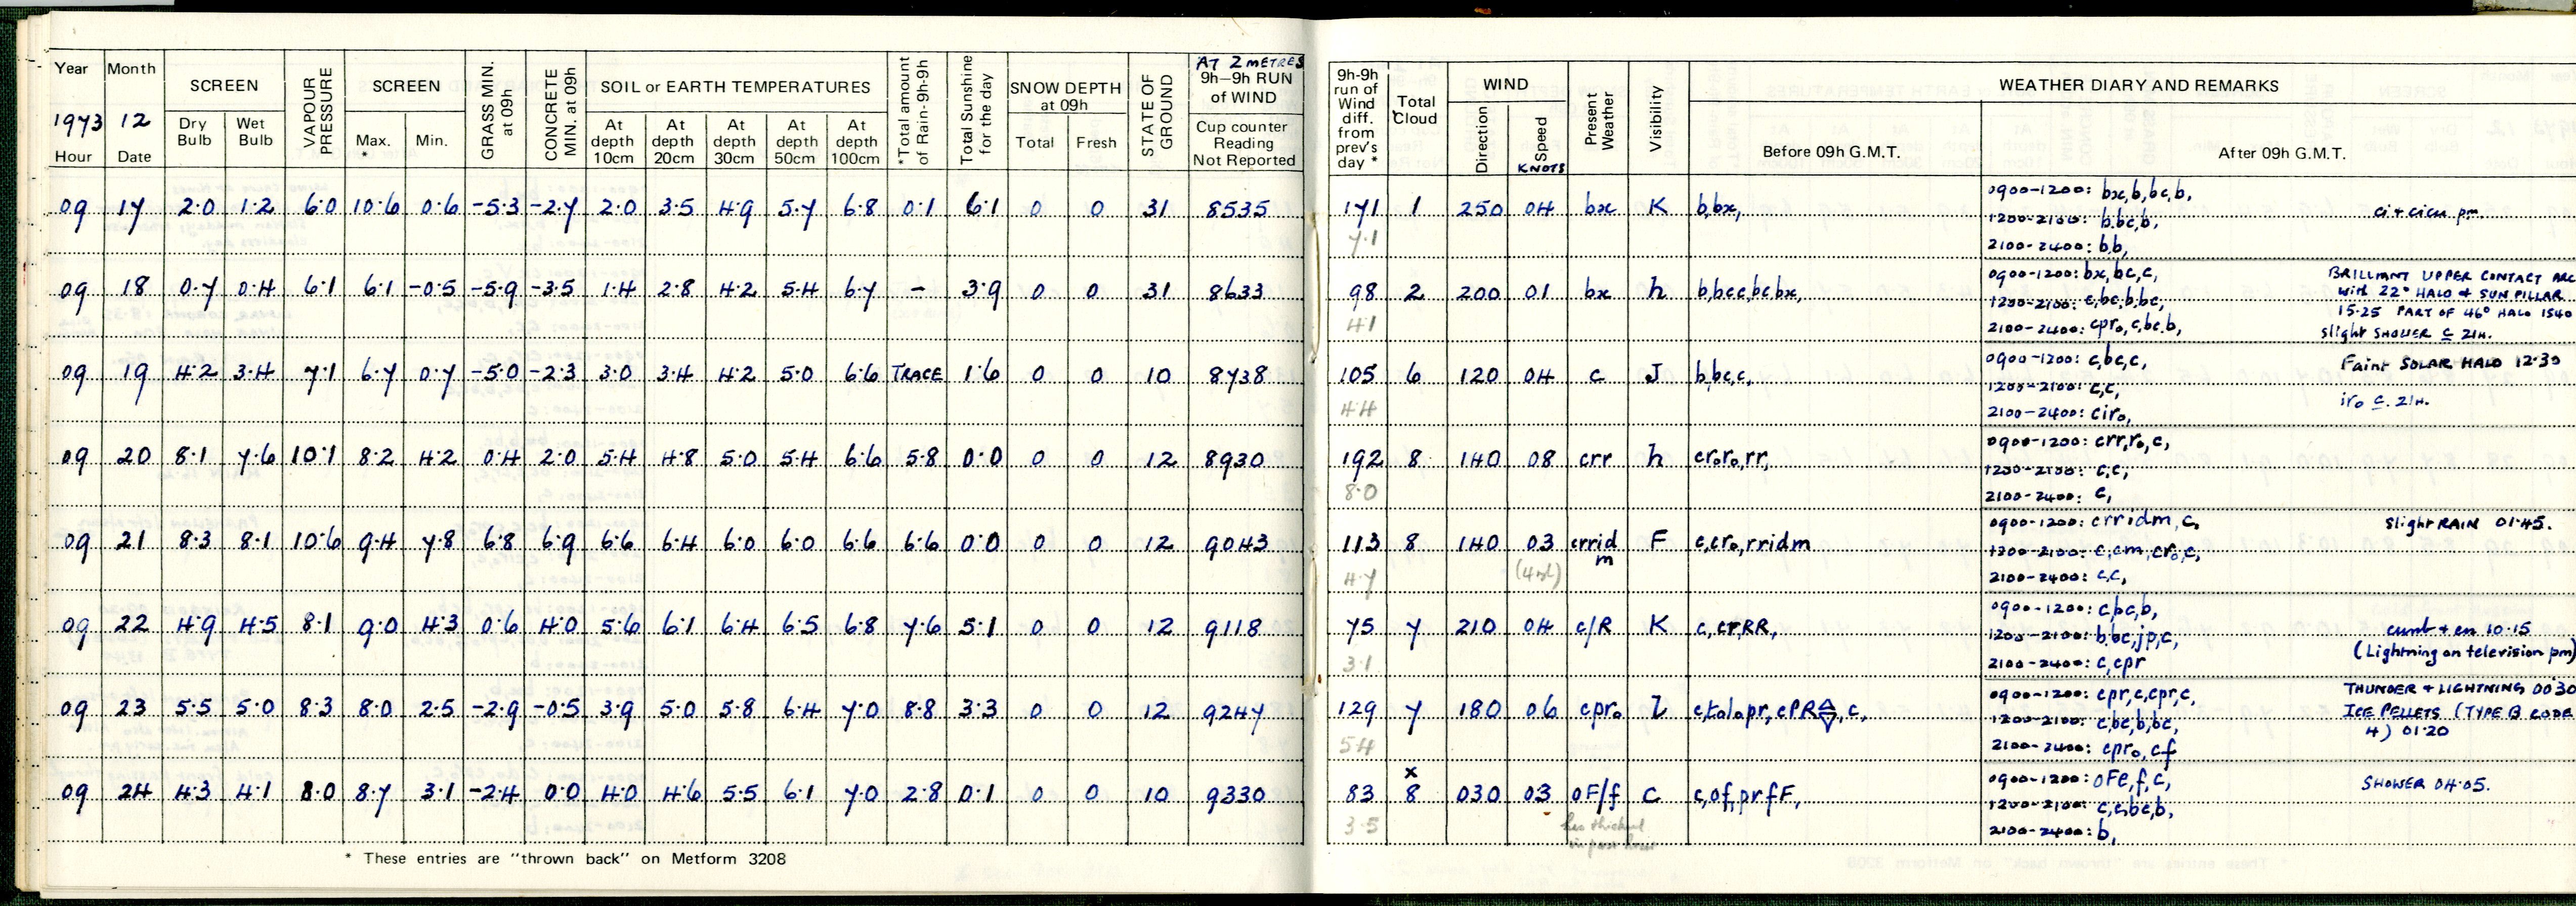 AT 2 METRES
Year Month SCREEN VAPOUR PRESSURE SCREEN GRASS MIN. at 09h CONCRETE MIN. at 09h SOIL or EARTH TEMPERATURES *Total amount of Rain-9h-9h Total Sunshine for the day SNOW DEPTH at 09h STATE OF GROUND 9h-9h RUN of WIND
1973 12 Dry Bulb Wet Bulb Max. * Min. At depth 10cm At depth 20cm At depth 30cm At depth 50cm At depth 100cm Total Fresh Cup counter Reading Not Reported
Hour Date
09 17 2·0 1·2 6·0 10·6 0·6 -5·3 -2·7 2·0 3·5 4·9 5·7 6·8 0·1 6·1 0 0 31 8535
09 18 0·7 0·4 6·1 6·1 -0·5 -5·9 -3·5 1·4 2·8 4·2 5·4 6·7 - 3·9 0 0 31 8633
09 19 4·2 3·4 7·1 6·7 0·7 -5·0 -2·3 3·0 3·4 4·2 5·0 6·6 TRACE 1·6 0 0 10 8738
09 20 8·1 7·6 10·1 8·2 4·2 0·4 2·0 5·4 4·8 5·0 5·4 6·6 5·8 0·0 0 0 12 8930
09 21 8·3 8·1 10·6 9·4 7·8 6·8 6·9 6·6 6·4 6·0 6·0 6·6 6·6 0·0 0 0 12 9043
09 22 4·9 4·5 8·1 9·0 4·3 0·6 4·0 5·6 6·1 6·4 6·5 6·8 7·6 5·1 0 0 12 9118
09 23 5·5 5·0 8·3 8·0 2·5 -2·9 -0·5 3·9 5·0 5·8 6·4 7·0 8·8 3·3 0 0 12 9247
09 24 4·3 4·1 8·0 8·7 3·1 -2·4 0·0 4·0 4·6 5·5 6·1 7·0 2·8 0·1 0 0 10 9330
* These entries are "thrown back" on Metform 3208
9h-9h run of Wind diff. from prev's day * Total Cloud WIND Present Weather Visibility WEATHER DIARY AND REMARKS
Direction Speed KNOTS Before 09h G.M.T. After 09h G.M.T.
171 1 250 04 bx K b,bx, 0900-1200: bx,b,bc,b,
7·1 1200-2100: b,bc,b, ci + cicu pm.
2100-2400: b,b,
98 2 200 01 bx h b,bcc,bc,bx, 0900-1200: bx,bc,c, BRILLIANT UPPER CONTACT ARC
with 22° HALO + SUN PILLAR
4·1 1200-2100: c,bc,b,bc, 15·25 PART OF 46° HALO 1540
2100-2400: cpr₀,c,bc,b, slight SHOWER c 21H.
105 6 120 04 c J b,bc,c, 0900-1200: c,bc,c, Faint SOLAR HALO 12·30
4·4 1200-2100: c,c, ir₀ c. 21H.
2100-2400: cir₀,
192 8 140 08 crr h cr₀r₀,rr, 0900-1200: crr,r₀,c,
8·0 1200-2100: c,c,
2100-2400: c,
113 8 140 03 crrid m F c,cr₀,rridm 0900-1200: crridm,c, slight RAIN 01·45.
4·7 1200-2100: c,cm,cr₀,c,
2100-2400: c,c,
75 7 210 04 c/R K c,cr,RR, 0900-1200: c,bc,b,
3·1 1200-2100: b,bc,jp,c, cumb + en 10·15
2100-2400: c,cpr (Lightning on television pm)
129 7 180 06 cpr₀ 0900-1200: cpr,c,cpr,c, THUNDER + LIGHTNING 00·30
5·4 1200-2100: c,bc,b,bc, ICE PELLETS (TYPE B CODE
2100-2400: cpr₀,cf 4) 01·20
x
83 8 030 03 oF/f C c,of,prfF, 0900-1200: oFe,f,c, SHOWER 04·05.
3·5 has thickened in past hour 1200-2100: c,c,bc,b,
2100-2400: b,